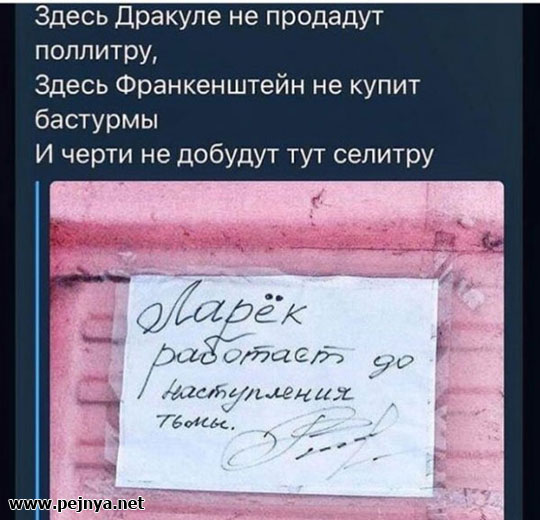 Здесь Дракуле не продадут
поллитру,
Здесь Франкенштейн не купит
бастурмы
И черти не добудут тут селитру
Ларёк
работает до
наступления
тьмы.
www.pejnya.net